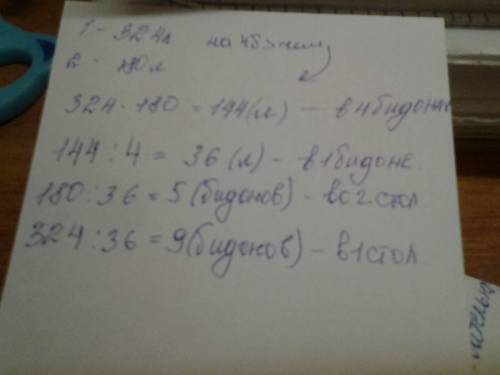 1 - 324л на 4б > чем
2 - 180 л
324 - 180 = 144 (л) - в 4 бидонах
144 : 4 = 36 (л) - в 1 бидоне.
180 : 36 = 5 (бидонов) - во 2 стол
324 : 36 = 9 (бидонов) - в 1 стол